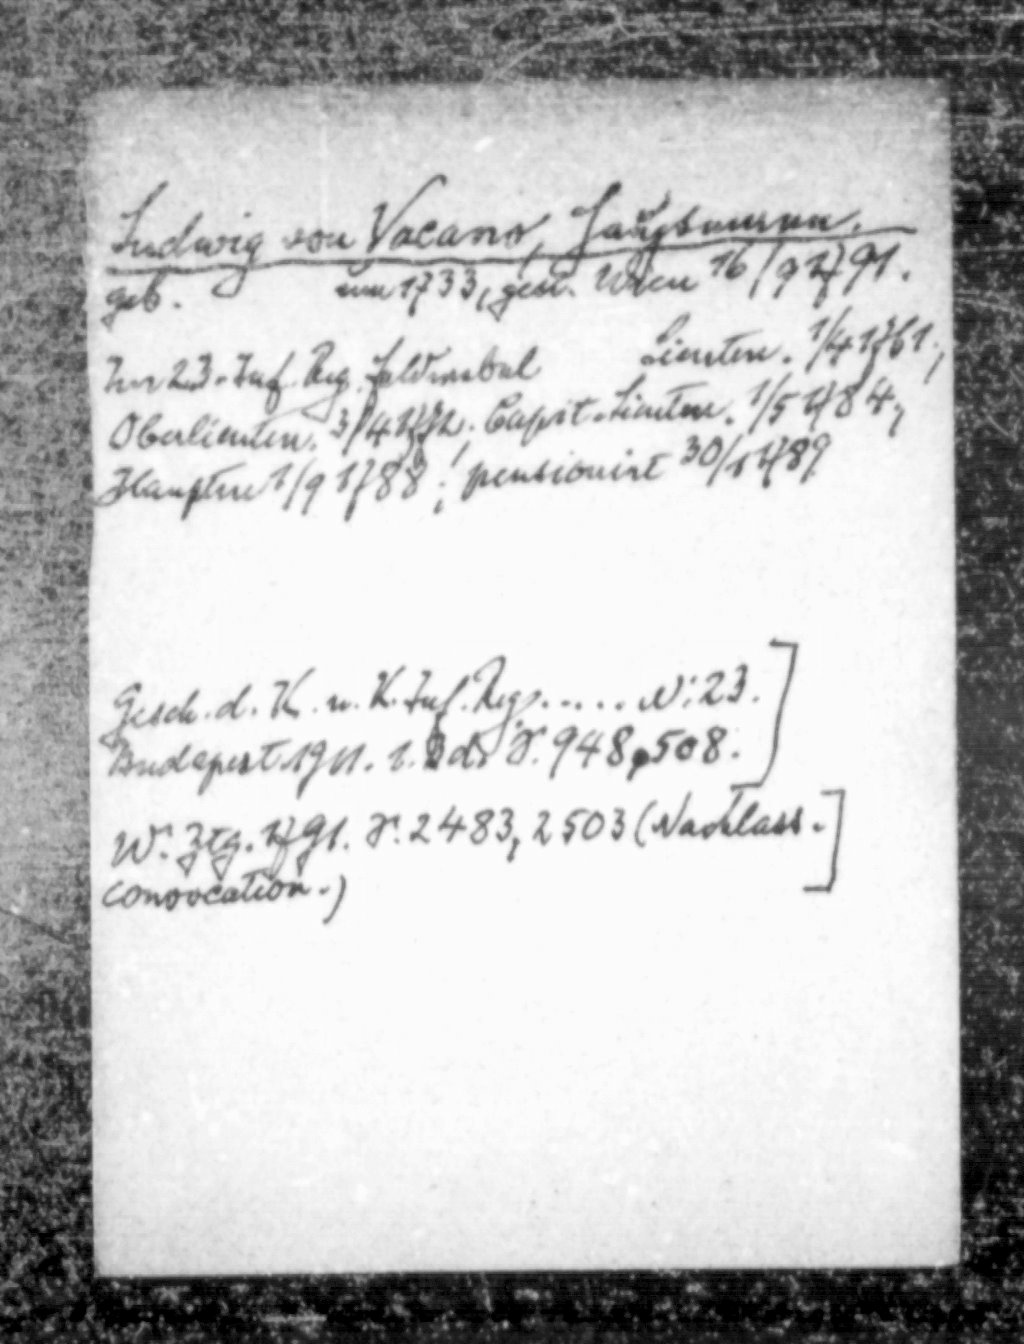 Ludwig von Vacano, Hauptmann.
geb. um 1733, gest. Wien 16/9 1791.
Im 23. Inf. Reg. Lieuten. 1/4 1761,
Oberlieuten. 3/4 1772. Capit. Lieuten. 1/5 1784,
Hauptm 1/9 1788; pensionirt 30/1 1789
Gesch. d. K. u. K. Inf. Regs. .... N: 23.
Budapest. 1911. 1. Bd. S. 948, 508.
W. Ztg. 1791. S. 2483, 2503 (Nachlass-
convocation.)